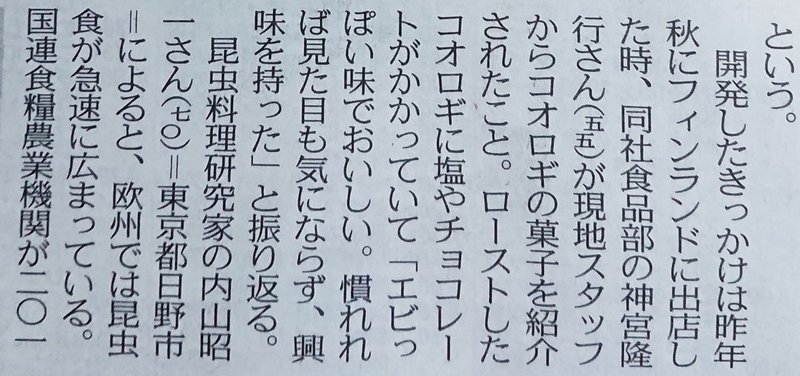 という。
　開発したきっかけは昨年
秋にフィンランドに出店し
た時、同社食品部の神宮隆
行さん（五五）が現地スタッフ
からコオロギの菓子を紹介
されたこと。ローストした
コオロギに塩やチョコレー
トがかかっていて「エビっ
ぽい味でおいしい。慣れれ
ば見た目も気にならず、興
味を持った」と振り返る。
　昆虫料理研究家の内山昭
一さん（七〇）＝東京都日野市
＝によると、欧州では昆虫
食が急速に広まっている。
国連食糧農業機関が二〇一